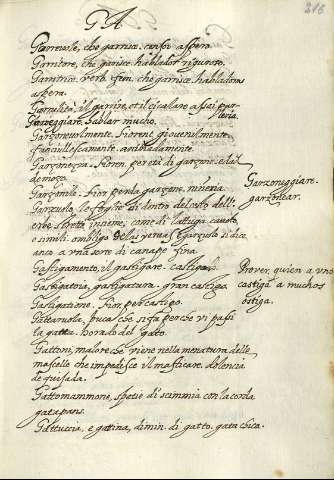 GA
216
Garrevole, che garrisce, censor aspero.
Garritore, che garisce, hablador riguroso.
Garritrice. verb. fem. che garrisce. habladora
aspera.
Garrulità, il garrire, et il cicalare assai par-
leria.
Garreggiare. hablar mucho.
Garzonevolmente. Fiorent. giovenilmente
fanciullescamente. aniñadamente.
Garzonezza. Fioren. per età di garzone. edad
de moço.
Garzonile. Fior. per da garzone. niñeria.
Garzuolo. le foglie di dentro del cesto dell'
erve strette insieme, come di lattuga, cavolo,
e simili. ombligo de las yervas e garzuolo si dice
anco a una sorte di canape fina.
Gastigamento, il gastigare. castigar.
Gastigatoia, gastigatura. gran castigo.
Gastigatione. Fior. per castigo.
Gattaiuola, buca che si fa perche vi passi
la gatta. horado del gato.
Gattoni, malore che viene nella menatura delle
mascelle che impedisce il masticare. dolencia
de quixada.
Gattomammone, spetie di scimmia con la coda
gatapaus.
Gattuccia, e gattina, dimin. di gatto. gata chica.
Garzoneggiare.
garzonear.
Prover. quien a uno
castiga a muchos
ostiga.